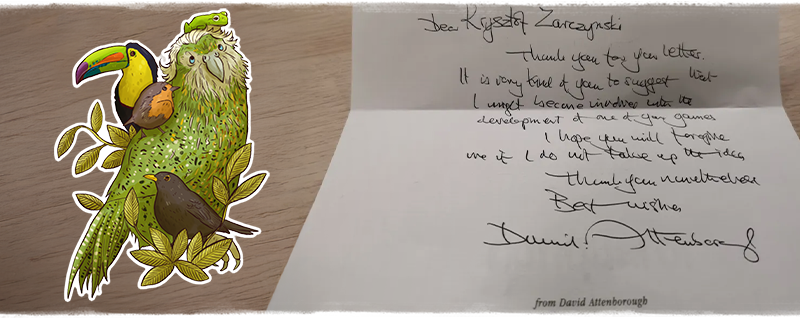 Dear Krysztof Zarczynski
Thank you for your letter.
It is very kind of you to suggest that
I might become involved with the
development of one of your games
I hope you will forgive
me if I do not take up the idea
Thank you nonetheless
Best wishes
David Attenborough
from David Attenborough